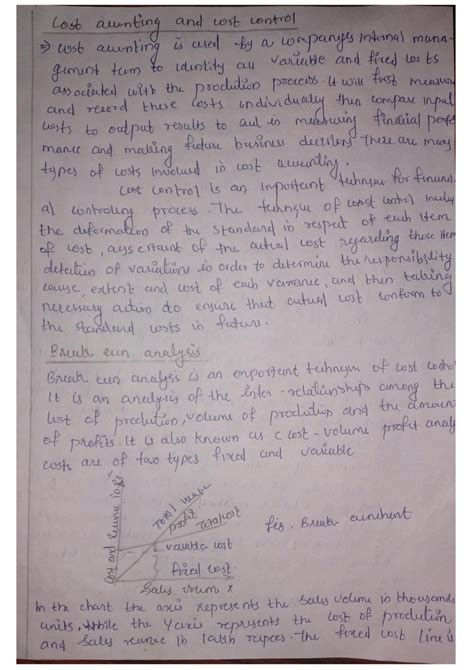 Cost acunting and cost control
⇒ cost acunting is used by a companyes internal mana-
gement team to identity all variable and fixed costs
associated with the prodution process. It will first measure
and record these costs individually then compare input
costs to output results to aid in measuring finacial perfo
mance and making future business decitions There are many
types of costs involved in cost acunting.
Cost control is an important tehnqu for financi
al controling process. The tehnqu of const control inclu
the deformation of the standard in respect of each item
of cost, the actual cost regarding these item
detection of variations in order to determine the responsibility
cause, extent and cost of each variance, and then taking
necessary action to ensure that actual cost conform to
the standard costs in future.
Break even analysis
Break even analysis is an emportant tehnqu of cost control
It is an analysis of the inter-relationships among the
cost of prodution, volume of prodution and the amoun
of profits. It is also known as c cost-volume profit analy
costs are of two types fixed and variable
Cost and Revenue in
Total
profit
Total cost
fig. Break
variable cost
fixed cost
Sales volum x
In the chart the axis represents the Sales volume in thousands
units. While the Y axis represents the cost of prodution
and Sales in lakh rupees. The fixed cost line is